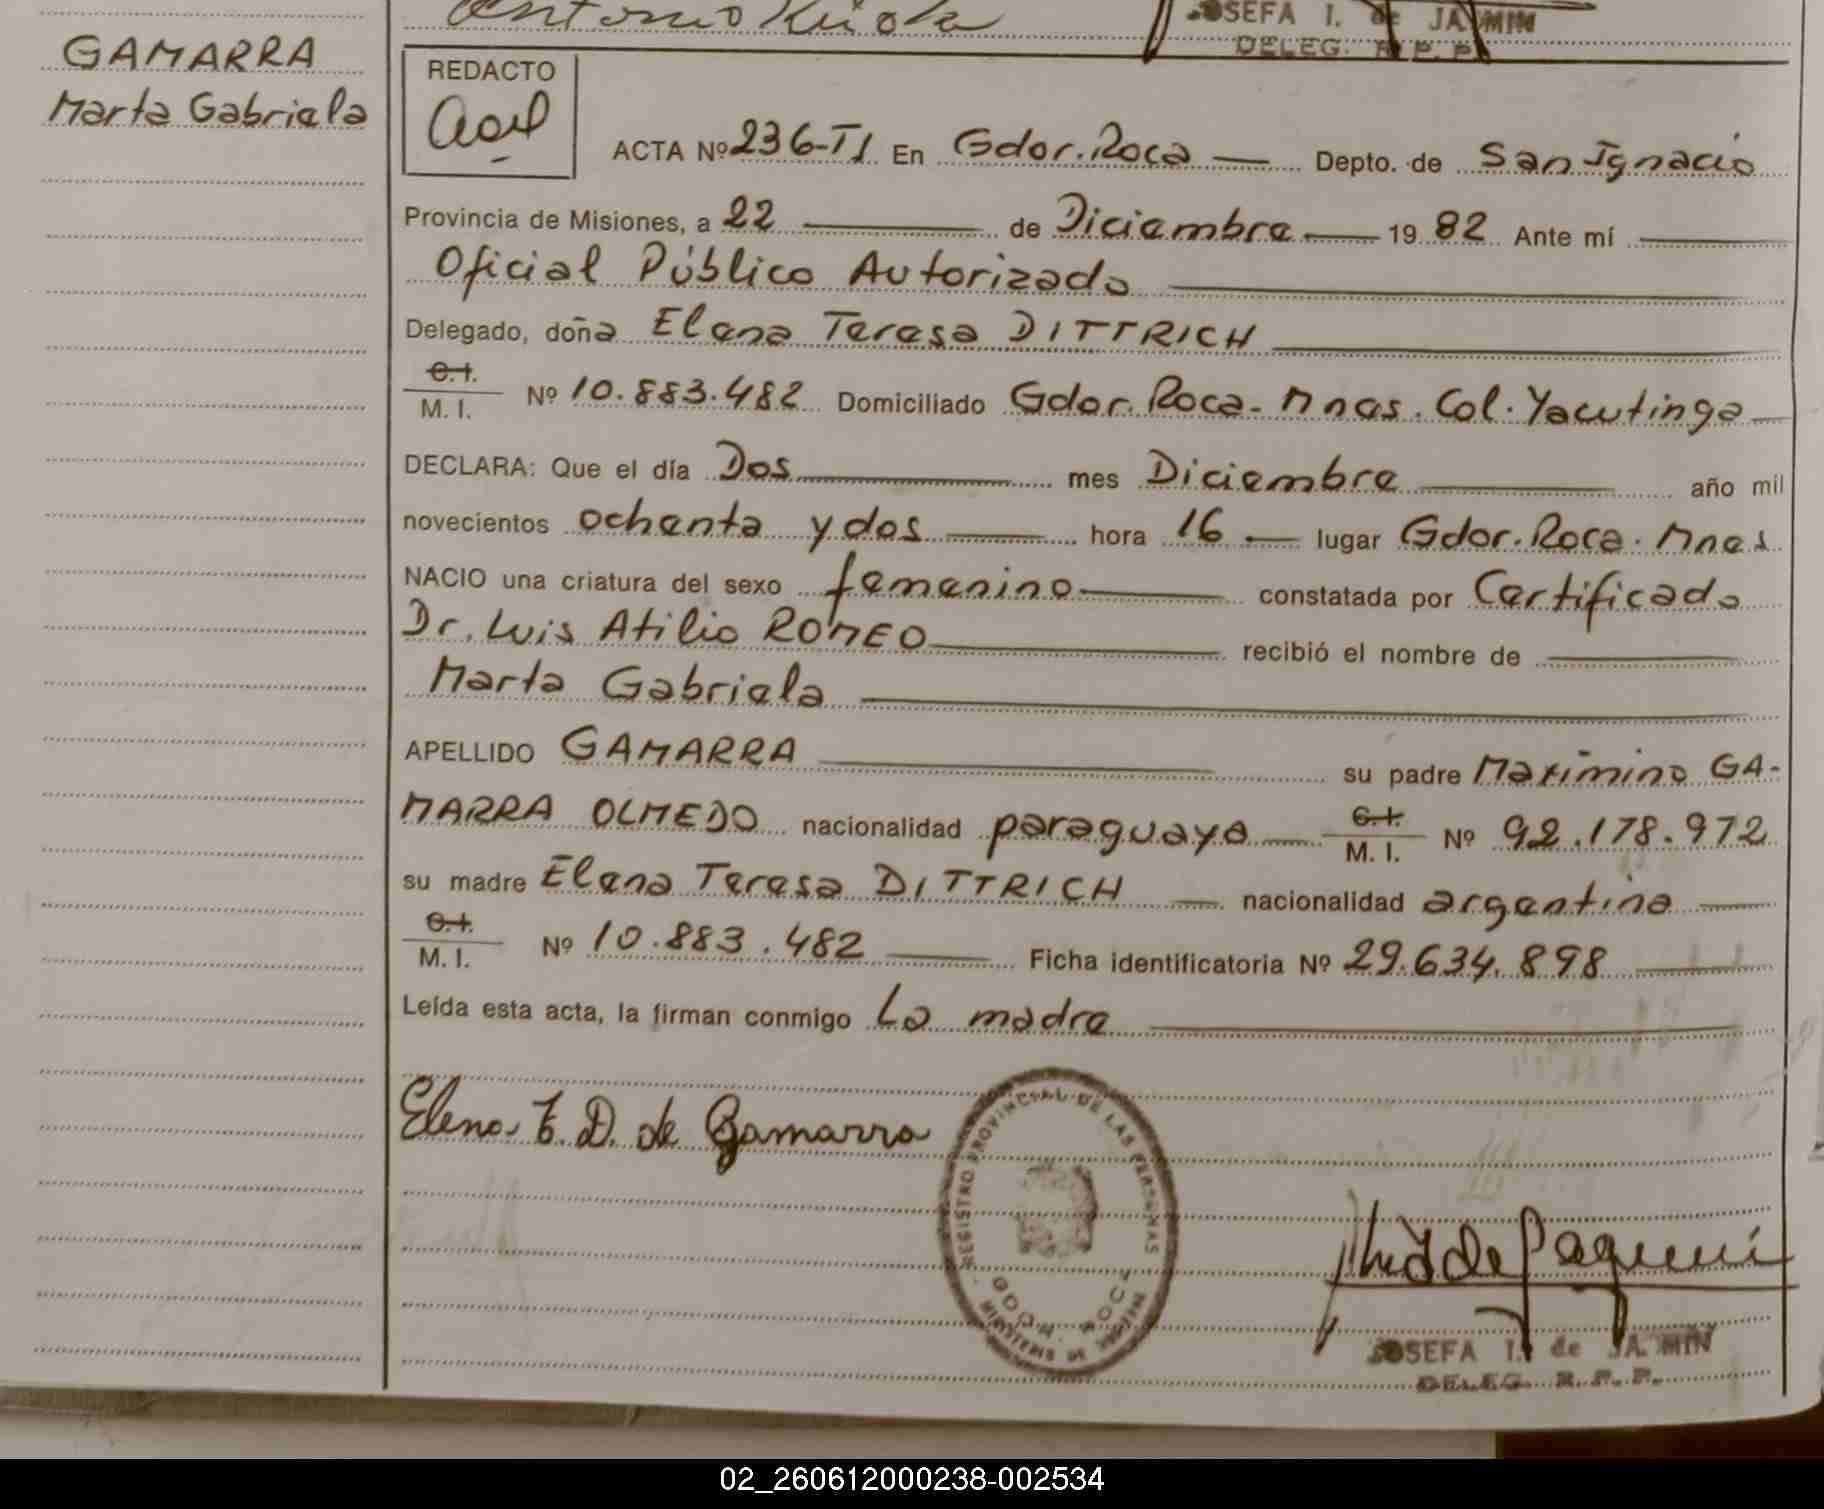 GAMARRA
Marta Gabriela
Antonio
JOSEFA I. de JA MIN
DELEG. R. P. P.
REDACTO
ACTA Nº 236-T1 En Gdor. Roca — Depto. de San Ignacio
Provincia de Misiones, a 22 — de Diciembre — 19 82 Ante mí —
Oficial Público Autorizado —
Delegado, doña Elena Teresa DITTRICH —
C.I.
M. I. Nº 10.883.482 Domiciliado Gdor. Roca - Mnes. Col. Yacutinga —
DECLARA: Que el día Dos — mes Diciembre — año mil
novecientos ochenta y dos — hora 16 — lugar Gdor. Roca. Mnes
NACIO una criatura del sexo femenino — constatada por Certificado
Dr. Luis Atilio ROMEO — recibió el nombre de —
Marta Gabriela —
APELLIDO GAMARRA — su padre Maximino GA-
MARRA OLMEDO nacionalidad paraguaya — C.I. M. I. Nº 92.178.972
su madre Elena Teresa DITTRICH — nacionalidad argentina —
C.I.
M. I. Nº 10.883.482 — Ficha identificatoria Nº 29.634.898 —
Leída esta acta, la firman conmigo La madre —
Elena T. D. de Gamarra
REGISTRO PROVINCIAL DE LAS PERSONAS
GDOR. ROCA
MINISTERIO DE GOBIERNO
JOSEFA I. de JA MIN
DELEG. R. P. P.
02_260612000238-002534